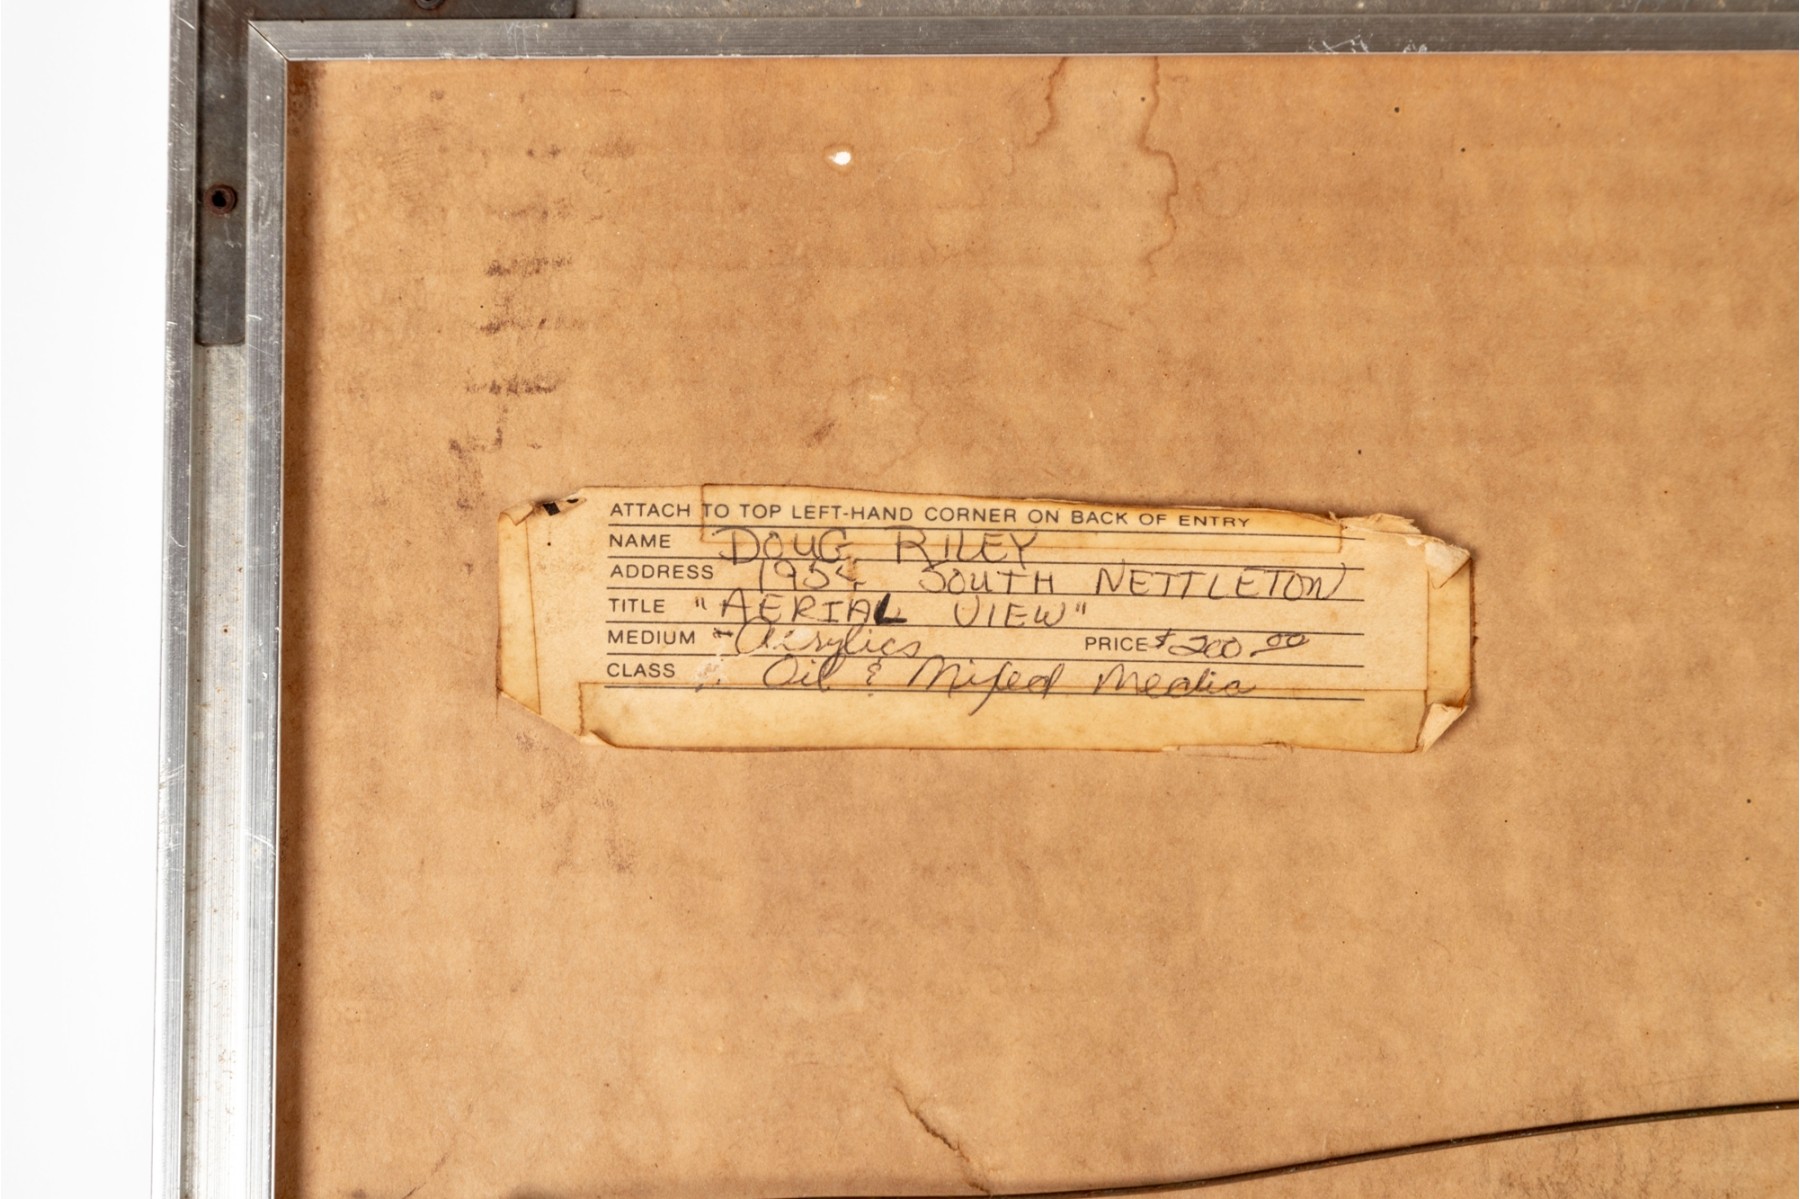 ATTACH TO TOP LEFT-HAND CORNER ON BACK OF ENTRY
NAME DOUG RILEY
ADDRESS SOUTH NETTLETON
TITLE "AERIAL VIEW"
MEDIUM - Acrylics PRICE $200.00
CLASS Oil & Mixed Media